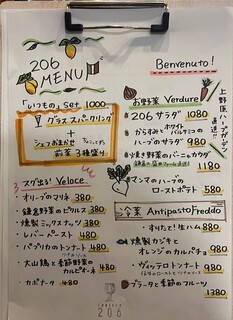 206
MENU
Benvenuto!
「いつもの」Set 1000
グラススパークリング
+
シェフおまかせ ちょこっとずつ
前菜3種盛り
スグ出る! Veloce
オリーブのマリネ 380
鎌倉野菜のピクルス 380
燻製ミックスナッツ 380
レバーペースト 480
パプリカのトンナート 480
大山鶏と季節野菜の
カルピオーネ 480
カポナータ 480
お野菜 Verdure
上野原ハーブガーデン
直送!
206サラダ 1080
からすみとホワイト
バルサミコの
ハーブのサラダ 980
焼き野菜のバーニャカウダ
1180
マンマのハーブの
ローストポテト 580
冷菜 AntipastoFreddo
すりたて!生ハム 880
燻製カジキと
オレンジのカルパチョ 980
ヴィテロトンナート 980
ブラータと季節のフルーツ
1380
206